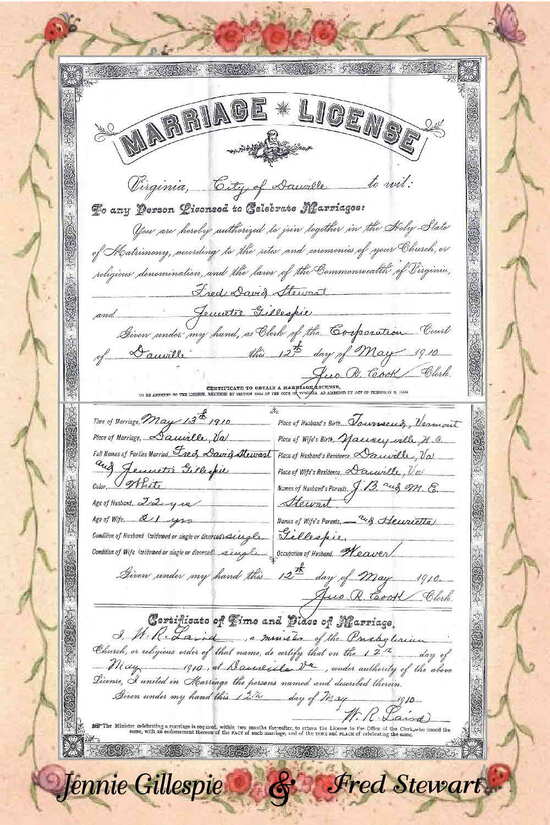 MARRIAGE LICENSE
Virginia, City of Danville to wit:
To any Person Licensed to Celebrate Marriages:
You are hereby authorized to join together in the Holy State
of Matrimony, according to the rites and ceremonies of your Church, or
religious denomination, and the laws of the Commonwealth of Virginia,
Fred David Stewart
and Gillespie
Given under my hand, as Clerk of the Corporation Court
of Danville this 12th day of May 1910
Jno R. Cook Clerk.
CERTIFICATE TO OBTAIN A MARRIAGE LICENSE,
Time of Marriage, May 13th 1910
Place of Marriage, Danville, Va
Full Names of Parties Married, Fred David Stewart
and Gillespie
Color, White
Age of Husband, 22 yrs
Age of Wife, 21 yrs
Condition of Husband (widowed or single or divorced) single
Condition of Wife (widowed or single or divorced) single
Place of Husband's Birth, Vermont
Place of Wife's Birth, N.C.
Place of Husband's Residence, Danville, Va
Place of Wife's Residence, Danville, Va
Names of Husband's Parents, J.B. and M.E.
Stewart
Names of Wife's Parents, — and Henrietta
Gillespie
Occupation of Husband, Weaver
Given under my hand this 12th day of May 1910.
Jno R. Cook Clerk.
Certificate of Time and Place of Marriage.
I, W.R. Laird, a minister of the Presbyterian
Church, or religious order of that name, do certify that on the 12th day of
May 1910, at Danville Va, under authority of the above
License, I united in Marriage the persons named and described therein.
Given under my hand this 12th day of May 1910
W.R. Laird
The Minister celebrating a marriage is required, within two months thereafter, to return the License to the Office of the Clerk who issued the
same, with an endorsement thereon of the FACT of such marriage, and of the TIME and PLACE of celebrating the same.
Jennie Gillespie & Fred Stewart